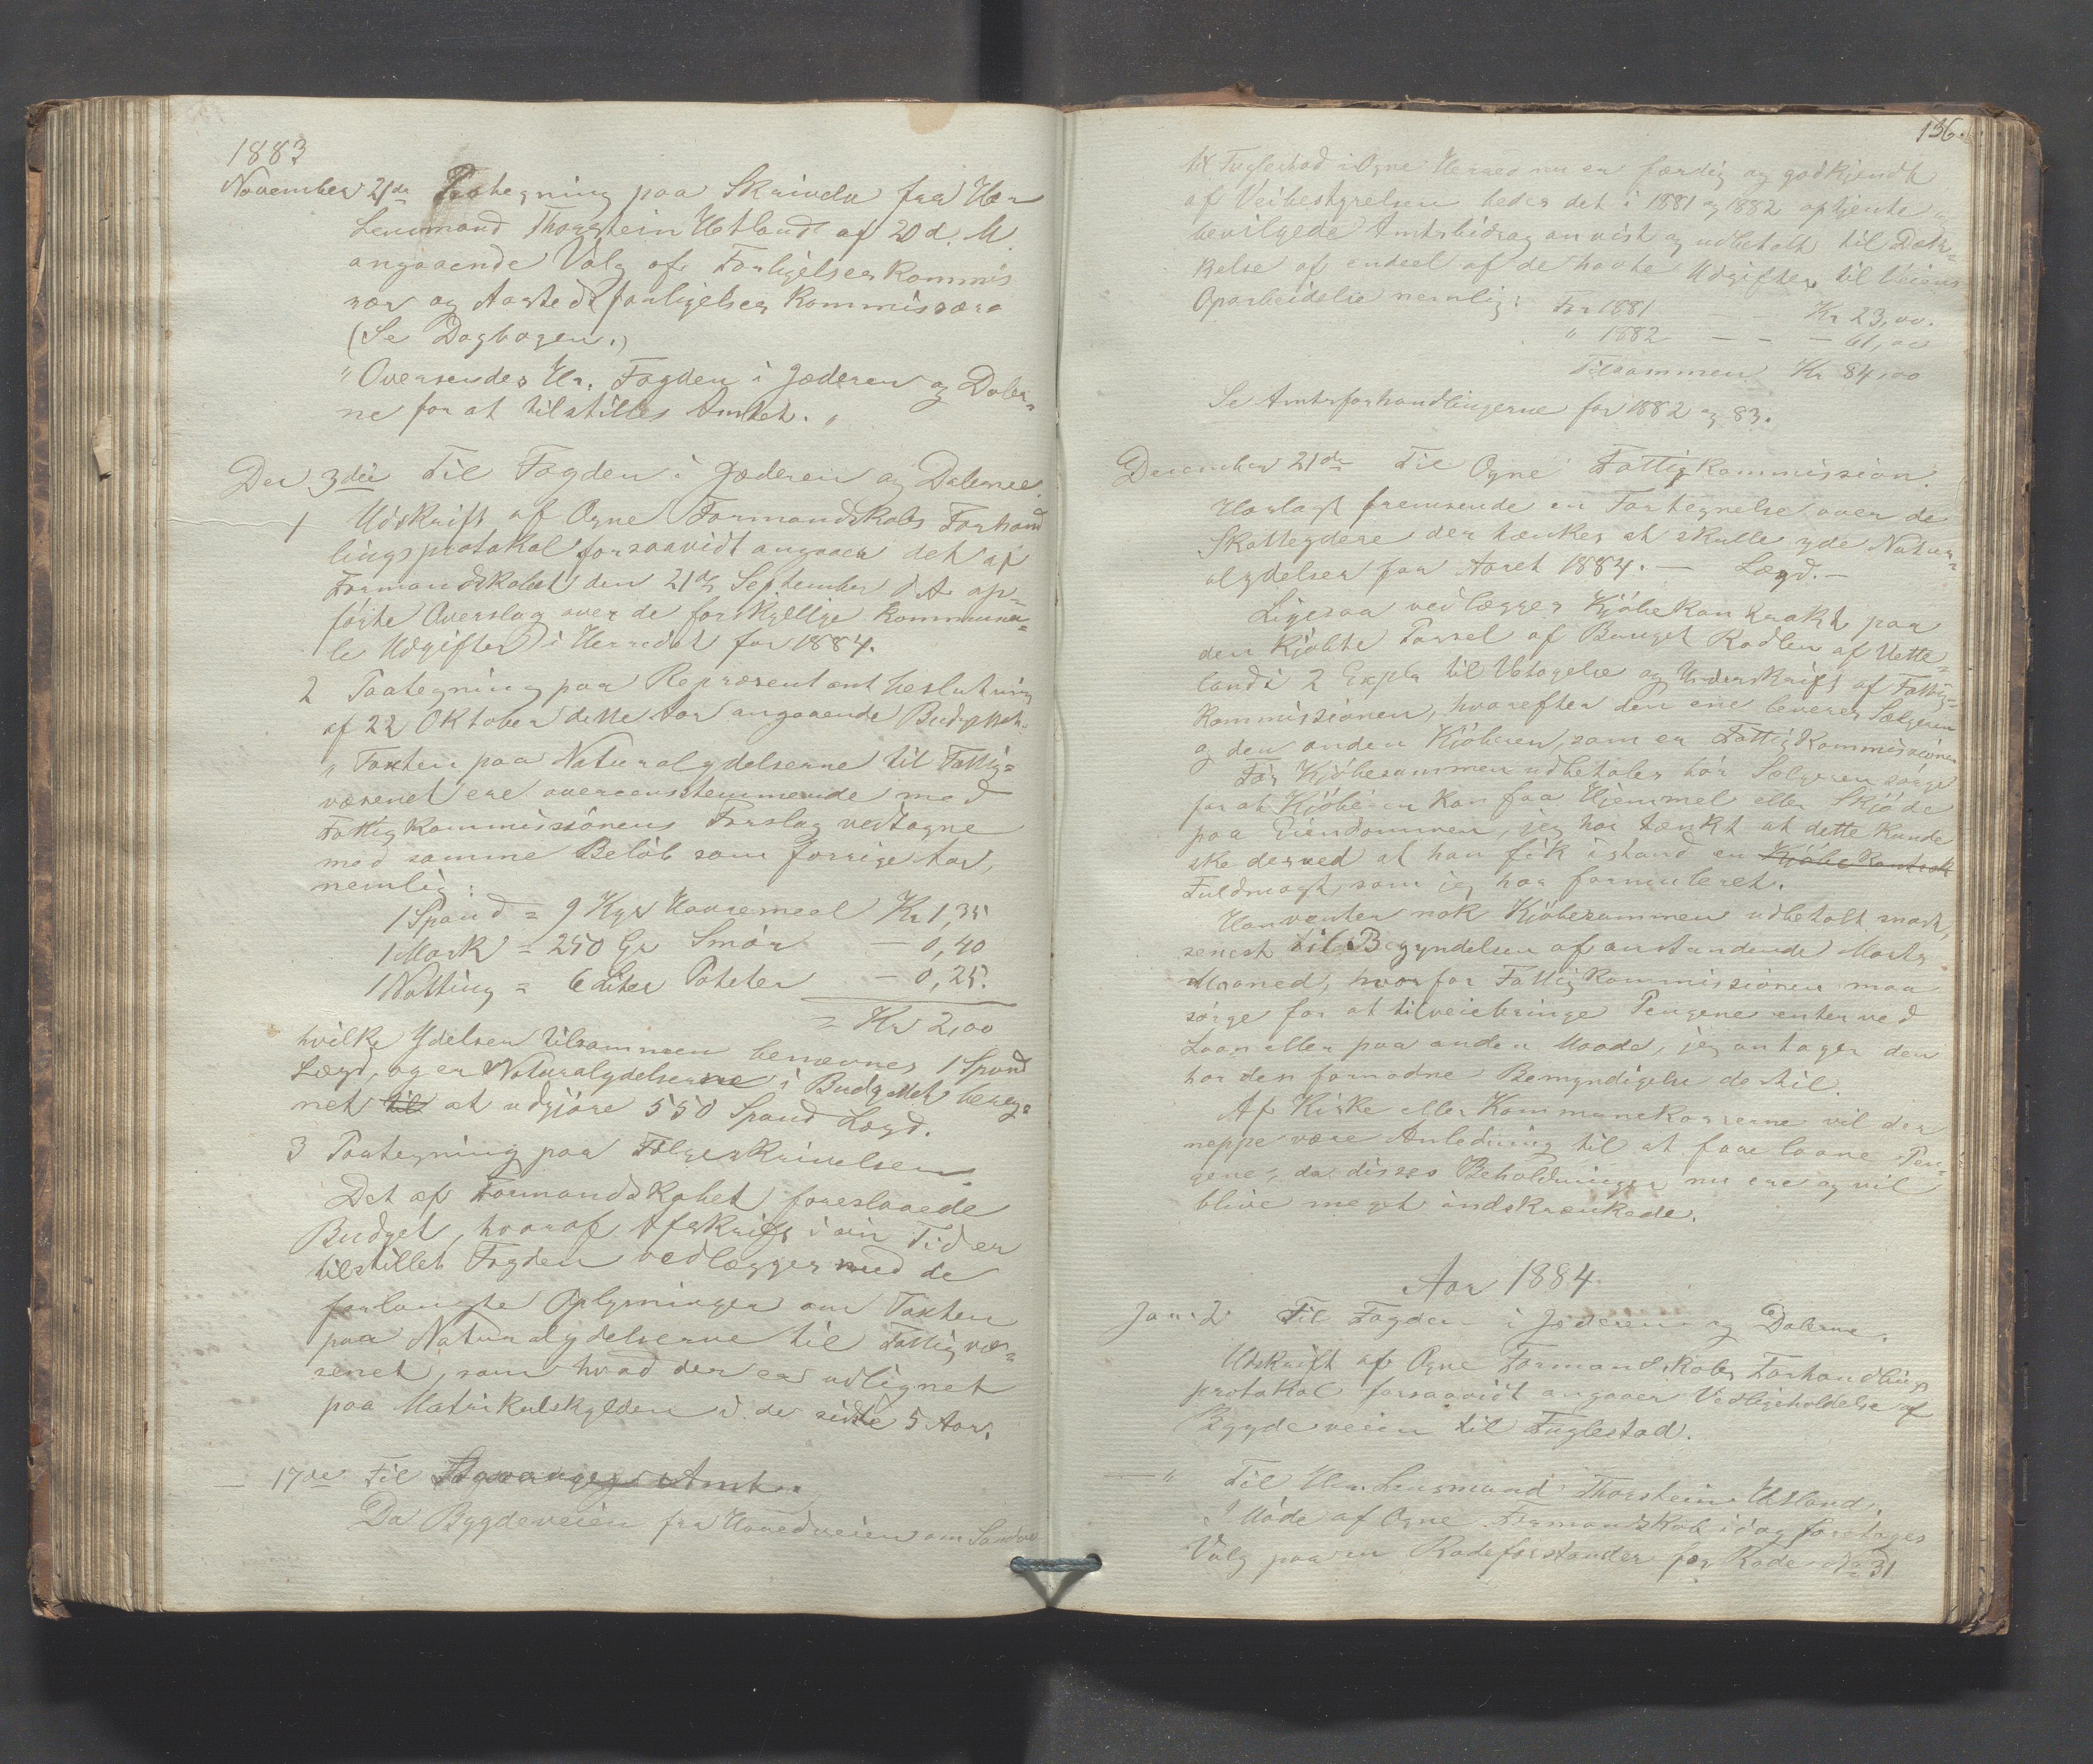 1883
November 21de Paategning paa Skrivelse fra Hr
Lensmand Thorstein Hetland af 20 d. M.
angaaende Valg af Forligelseskommis
rær og Aastedsforligelses Kommissære
(Se Dagbogen.)
" Oversendes Hr. Fogden i Jæderen og Daler=
ne for at tilstilles Amtet. "
Der 3die Til Fogden i Jæderen og Dalerne.
1 Udskrift af Ogne Formandskabs Forhand
lingsprotokol forsaavidt angaaer det af
Formandskabet den 21de September d. A. op=
førte Overslag over de forskjellige Kommuna=
le Udgifter i Herredet for 1884.
2 Paategning paa Repræsentantbeslutning
af 22 Oktober dette Aar angaaende Budgettet.
" Taxten paa Naturalydelserne til Fattig=
væsenet ere overeenstemmende med
Fattigkommissionens Forslag vedtagne
med samme Beløb som forrige Aar,
nemlig:
1 Spand = 9 Kgr Havremeel Kr 1,35
1 Mark = 250 Gr Smør — 0,40
1 Notting = 6 Liter Poteter — 0,25.
= Kr 2,00
hvilke Ydelser tilsammen benævnes 1 Spand
Lægd, og er Naturalydelserne i Budgettet bereg=
net til at udgjøre 550 Spand Lægd.
3 Paategning paa Følgeskrivelsen.
Det af Formandskabet foreslaaede
Budget, hvoraf Afskrift i sin Tid er
tilstillet Fogden vedlægges med de
forlangte Oplysninger om Taxten
paa Naturalydelserne til Fattigvæ=
senet, som hvad der er udlignet
paa Matrikulskylden i de sidste 5 Aar.
— 17de Til Stavanger Amt.
Da Bygdeveien fra Hovedveien om Sandve
136.
til Fuglestad i Ogne Herred nu er færdig og godkjendt
af Veibestyrelsen bedes det i 1881 og 1882 optjente og
bevilgede Amtsbidrag anvist og udbetalt til Dæk=
kelse af endeel af de havte Udgifter til Veiens
Oparbeidelse nemlig: For 1881 — — Kr 23,00.
" 1882 — — — 61,00
Tilsammen Kr 84,00
Se Amtsforhandlingerne for 1882 og 83.
December 21de Til Ogne Fattigkommission.
Hoslagt fremsende en Fortegnelse over de
Skatteydere der tænkes at skulle yde Natur=
alydelser for Aaret 1884. — Lægd. —
Ligesaa vedlægges Kjøbekontrakt paa
den kjøbte Parsel af Bruget Rodlen af Hette=
land i 2 Expl. til Vetagelse og Underskrift af Fattig=
kommissionen, hvorefter den ene leveres Sælgeren
og den anden Kjøberen, som er Fattigkommissionen
Før Kjøbesummen udbetales bør Sælgeren sørge
for at Kjøberen kan faa Hjemmel eller Skjøde
paa Eiendommen, jeg har tænkt at dette kunde
ske derved at han fik istand en Kjøbekontrak
Fuldmagt, som jeg har formuleret.
Han venter nok Kjøbesummen udbetalt snart,
senest til Begyndelsen af anstundende Marts
Maaned, hvorfor Fattigkommissionen maa
sørge for at tilveiebringe Pengene enten ved
Laan eller paa anden Maade, jeg antager den
har den fornødne Bemyndigelse dertil.
Af Kirke eller Kommunekasserne vil der
neppe være Anledning til at faae laane Pen=
gene, da disses Beholdninger nu ere og vil
blive meget indskrænkede.
Aar 1884
Jan. 2 Til Fogden i Jæderen og Dalerne.
Udskrift af Ogne Formandskabs Forhandlings
protokol forsaavidt angaaer Vedligeholdelse af
Bygdeveien til Fuglestad.
— " Til Hr. Lensmand Thorstein Hetland.
I Møde af Ogne Formandskab idag foretages
Valg paa en Rodeforstander for Rode No 31